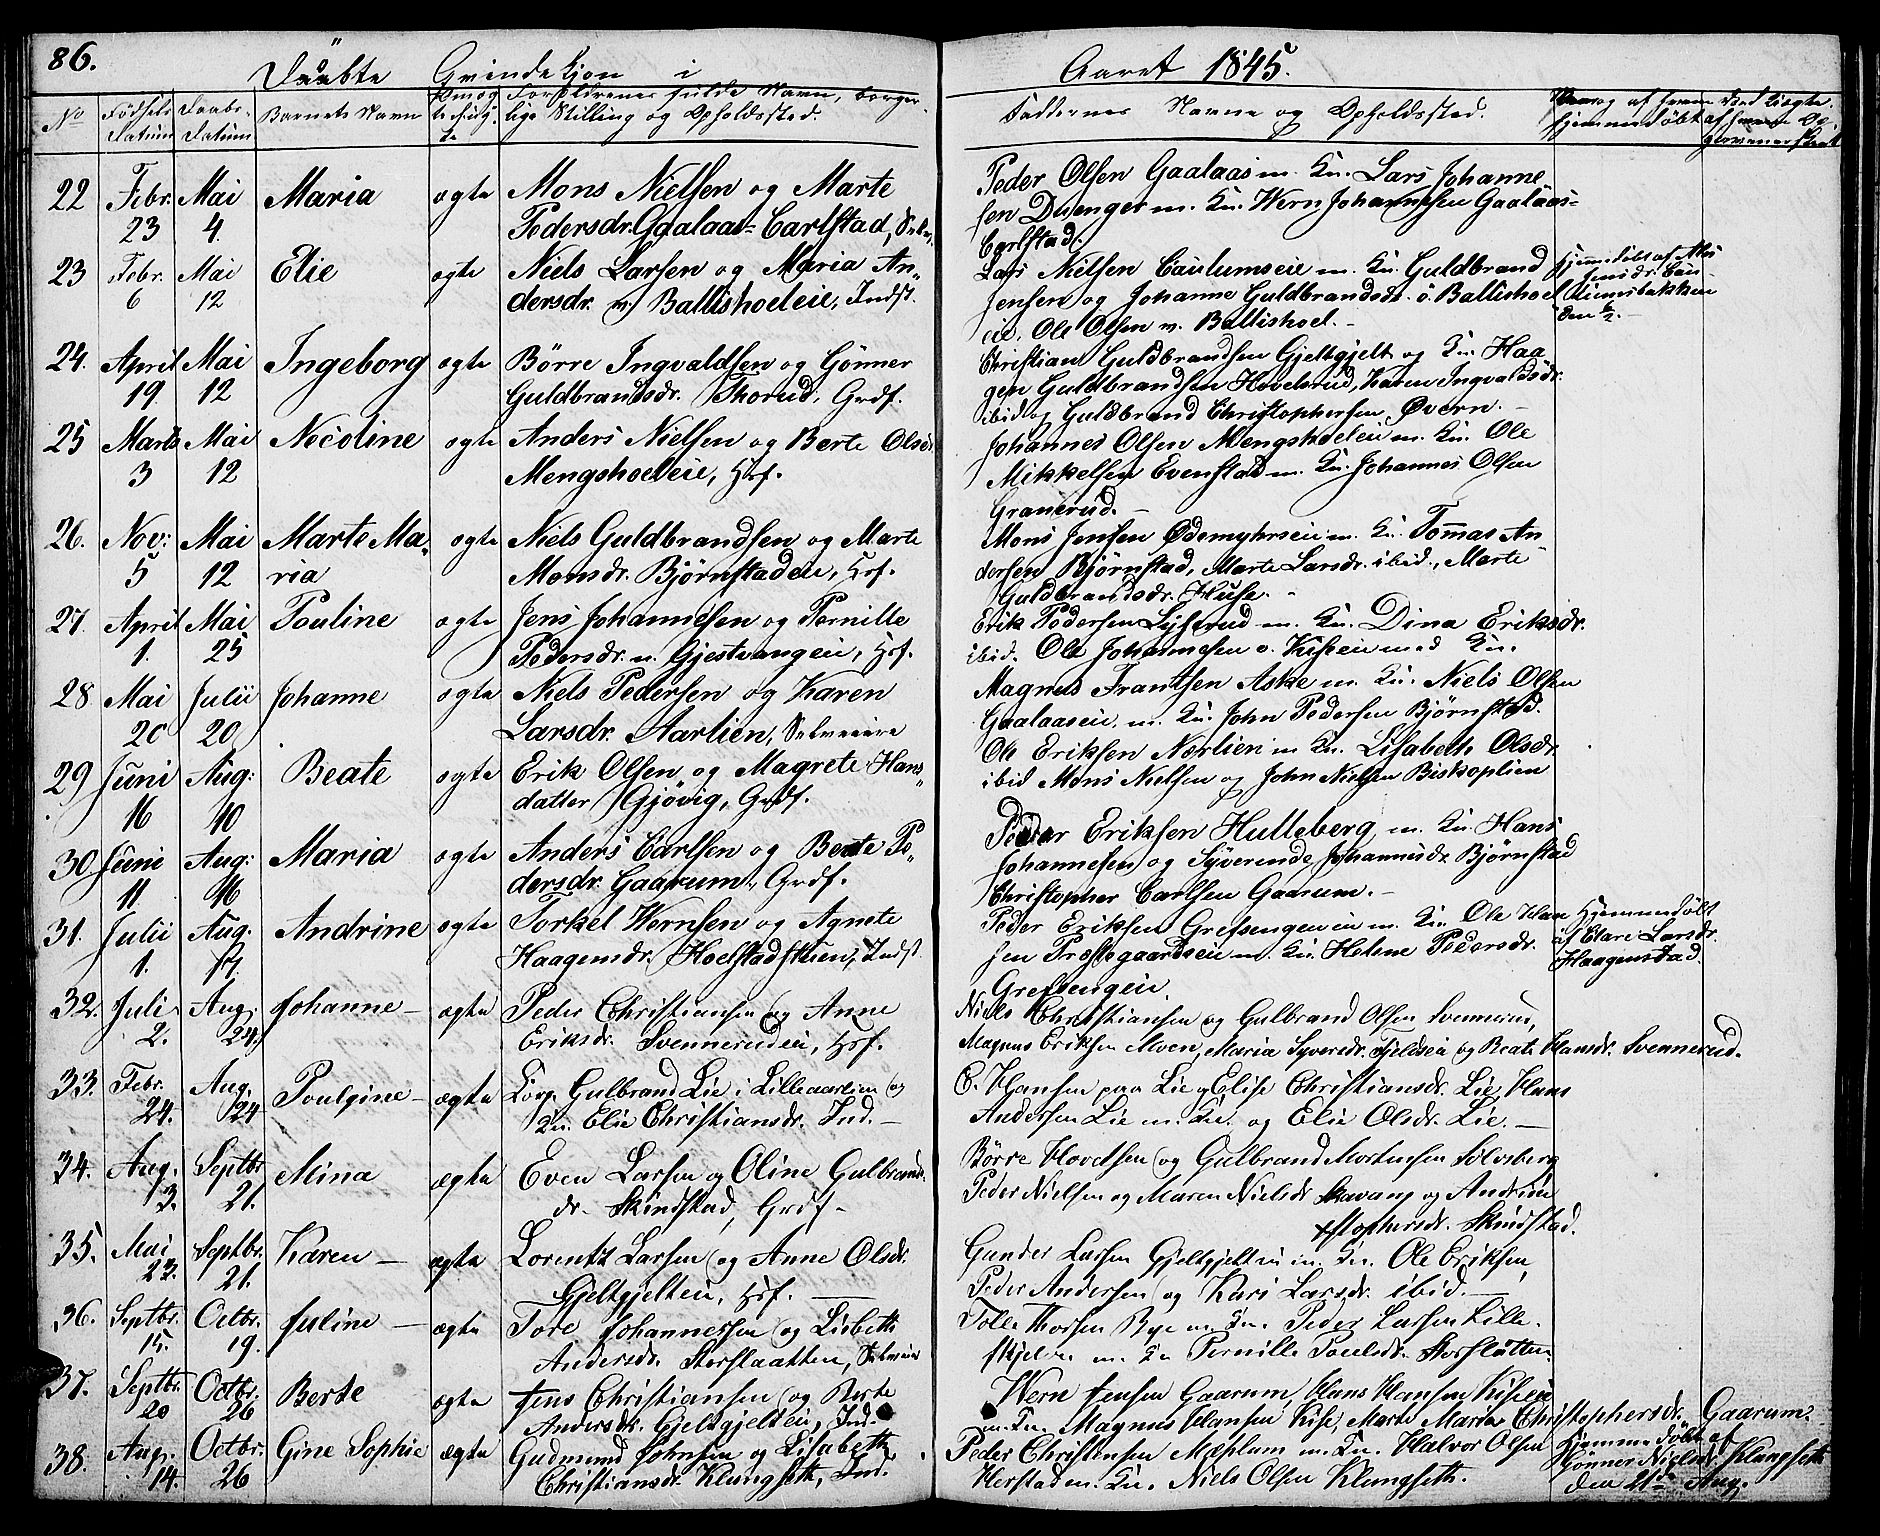 86.
Døbte Qvindekjøn i Aaret 1845.
No Fødsels Datum Daabs Datum Barnets Navn Forældrenes fulde Navn, borgerlige Stilling og Opholdssted.
Faddernes Navne og Opholdssted. hjemmedøbt
22 Febr. 23 Mai 4. Maria ægte Mons Nielsen og Marte
Pedersdr. Gaalaas-Carlstad, Selv.
Peder Olsen Gaalaas m. Ku. Lars Johanne
sen Duenger m. Ku. Wern Johannesen Gaalaas-
Carlstad.
23 Febr. 6 Mai 12 Elie ægte Niels Larsen og Maria An-
dersdr. v Ballishoeleie, Indst.
Lars Nielsen Caulumseie m. Ku. Guldbrand
Jensen og Johanne Guldbrandsdr. ø. Ballishoel
eie. Ole Olsen v. Ballishoel.
24. April 19 Mai 12 Ingeborg ægte Börre Ingvaldsen og Gönner
Guldbrandsdr. Thorud, Grdf.
Christian Guldbrandsen Gjeltgjelt og Ku. Haa
gen Guldbrandsen Hovelsrud, Karen Ingvaldsdr.
ibid og Guldbrand Christophersen Øvern.
25 Marts 3 Mai 12 Nicoline ægte Anders Nielsen og Berte Olsdr.
Mengshoeleie, Hsf.
Johannes Olsen Mengshoeleie m. Ku. Ole
Mikkelsen Evenstad m. Ku. Johannes Olsen
Granerud.
26. Nov: 5 Mai 12 Marte Ma-
ria ægte Niels Guldbrandsen og Marte
Monsdr. Björnstadeie, Hsf.
Mons Jensen Ødemyhrseie m. Ku. Tommas An
dersen Björnstad, Marte Larsdr. ibid., Marte
Guldbrandsdr. Huse.
27. April 1. Mai 25 Pouline ægte Jens Johannesen og Pernille
Pedersdr. n. Gjestvangeie, Hsf.
Erik Pedersen Lysterud m. Ku. Dina Eriksdr.
ibid. Ole Johannesen v. Kiseeie med Ku.
28 Mai 20 Julii 20 Johanne ægte Niels Pedersen og Karen
Larsdr. Aarlien, Selveiere
Magnus Frantsen Aske m. Ku. Niels Olsen
Gaalaaseie m. Ku. John Pedersen Björnstad.
29 Juni 16 Aug: 10 Beate ægte Erik Olsen og Magrete Hans-
datter Gjövig, Grdf.
Ole Eriksen Nærlien m Ku. Lisabeth Olsdr.
ibid Mons Nielsen og John Nielsen Biskoplien
30 Juni 11 Aug: 16 Maria ægte Anders Carlsen og Beate Pe-
dersdr. Gaarum, Grdf.
Peder Eriksen Hulleberg m. Ku. Hans
Johannesen og Syverende Johannesdr. Björnstad
Christopher Carlsen Gaarum.
31. Julii 1. Aug. 17. Andrine ægte Torkel Wernsen og Agnete
Haagensdr. Hoelstadstuen, Indst
Peder Eriksen Grefsengeie m. Ku. Ole Han
sen Præstegaardseie m. Ku. Helene Pedersdr.
Grefsengeie.
Hjemmedøbt
af Clare Larsdr.
Haagenstad.
32. Juli 2. Aug. 24. Johanne ægte Peder Christiansen og Anne
Eriksdr. Svennerudeie, Hsf.
Niels Christiansen og Gulbrand Olsen Svennerud,
Magnus Eriksen Moen, Maria Syversdr. Fjeldseie og Beate Hansdr. Svennerud.
33. Febr. 24. Aug. 24 Poulgine ægte Corp. Gulbrand Lie i Lilleaarlien og
Ku. Elie Christiansdr. Ind.
C. Hansen paa Lie og Elise Christiansdr. Lie, Hans
Andersen Lie m. Ku. og Elie Olsdr. Lie.
34. Aug. 3. Septbr 21. Mina ægte Even Larsen og Oline Gulbrands-
dr. Skindstad, Grdf.
Börre Hovelsen og Gulbrand Mortensen Sölvsberg
Peder Nielsen og Maren Nielsdr. Skavang og Andrine
Xstophersdr. Skindstad.
35. Mai 23. Septbr. 21. Karen ægte Lorentz Larsen og Anne Olsdr.
Gjeltgjelteie, Hsf.
Gunder Larsen Gjeltgjelteie m. Ku. Ole Eriksen,
Peder Andersen og Kari Larsdr. ibid.
36. Septbr. 15. Octbr. 19. Juline ægte Tore Johannessen og Lisbeth
Andersdr. Storslaatten, Selveier
Tolle Thorsen Bye m. Ku. Peder Larsen Lille-
skjel m. Ku Pernille Poulsdr. Storslåtten.
37. Septbr. 20 Octbr. 26 Berte ægte Jens Christiansen og Berte
Andersdr. Gjeltgjelteie, Ind.
Wern Jensen Gaarum, Hans Hansen Kiseeie
m. Ku. Magnus Hansen Kise, Marte Marie Christophersdr. Gaarum.
38. Aug. 14. Octbr. 26 Gine Sophie ægte Gudmund Johnsen og Lisabeth
Christiansdr. Klungseth, Ind.
Peder Christensen Mæhlum m. Ku. Halvor Olsen
Herstad m. Ku. Niels Olsen Klungseth.
Hjemmedøbt af
Gönner Nielsdr. Klungseth
den 21de Aug.